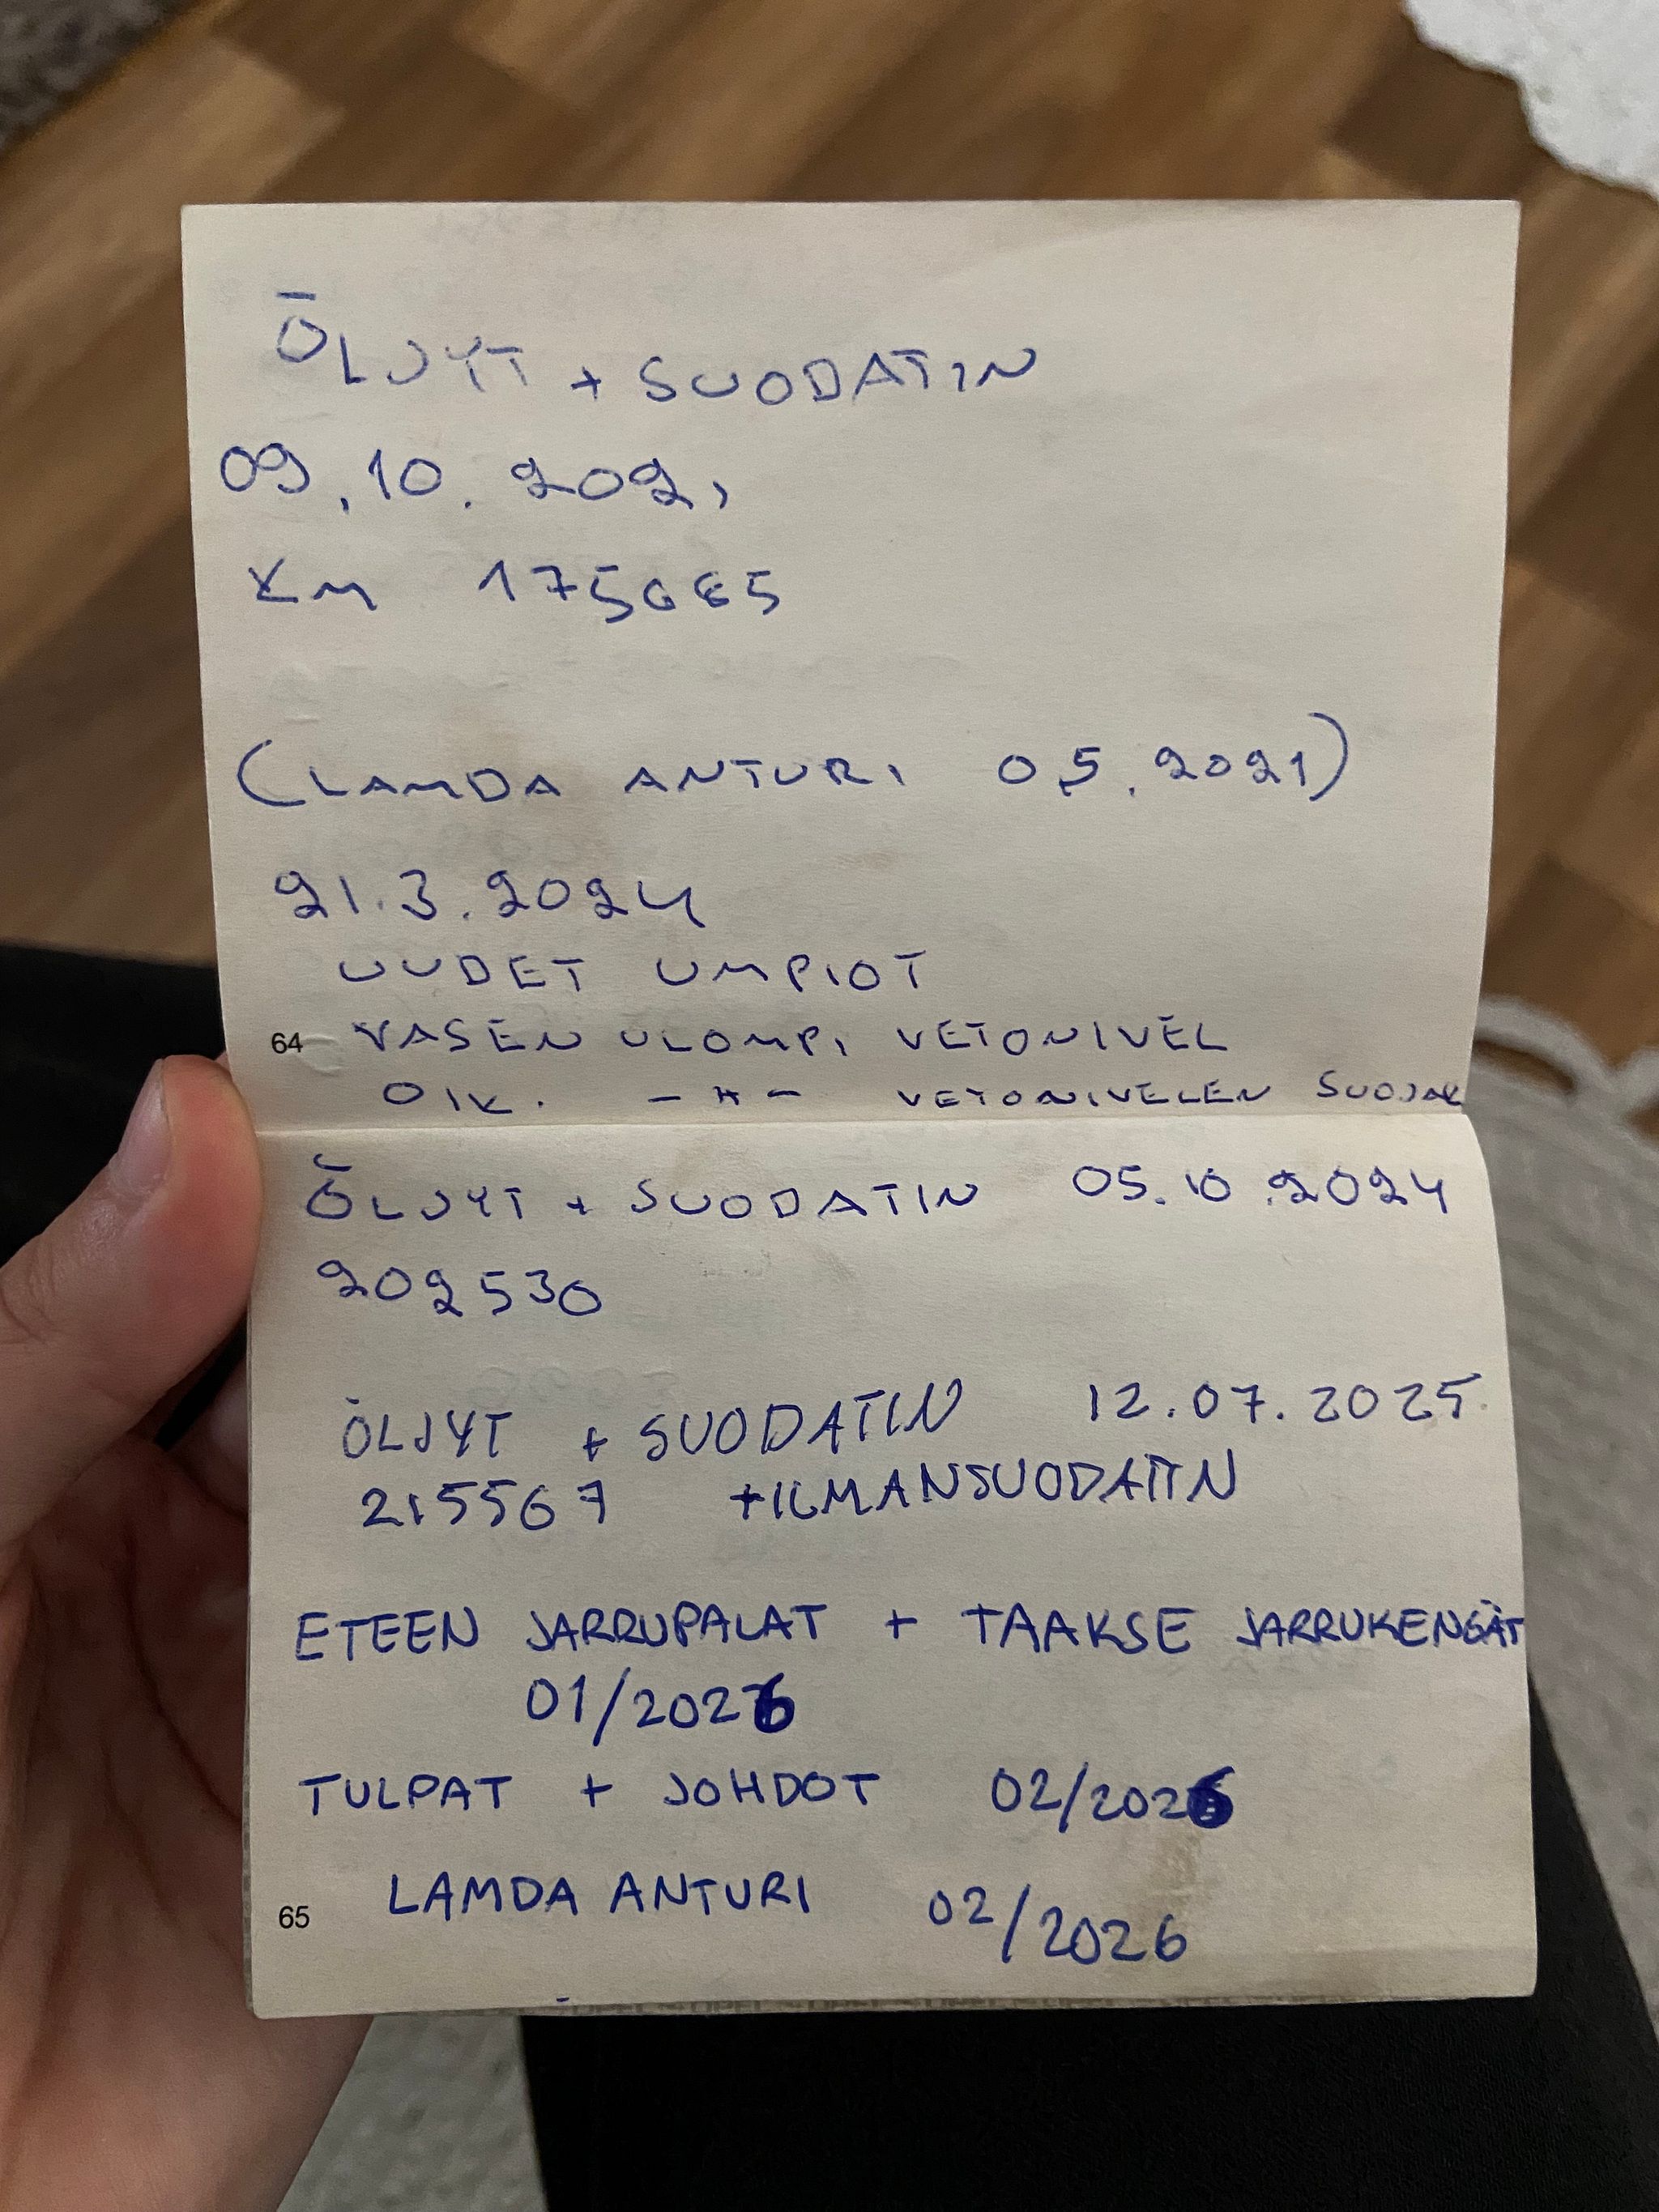 ÖLJYT + SUODATIN
09.10.2021
KM 175665
(LAMDA ANTURI 05.2021)
21.3.2024
UUDET UMPIOT
64 VASEN ULOMPI VETONIVEL
OIK. -"- VETONIVELEN SUOJAK
ÖLJYT + SUODATIN 05.10.2024
202530
ÖLJYT + SUODATIN 12.07.2025
215567 +ILMANSUODATIN
ETEEN JARRUPALAT + TAAKSE JARRUKENGÄT
01/2026
TULPAT + JOHDOT 02/2026
65 LAMDA ANTURI 02/2026